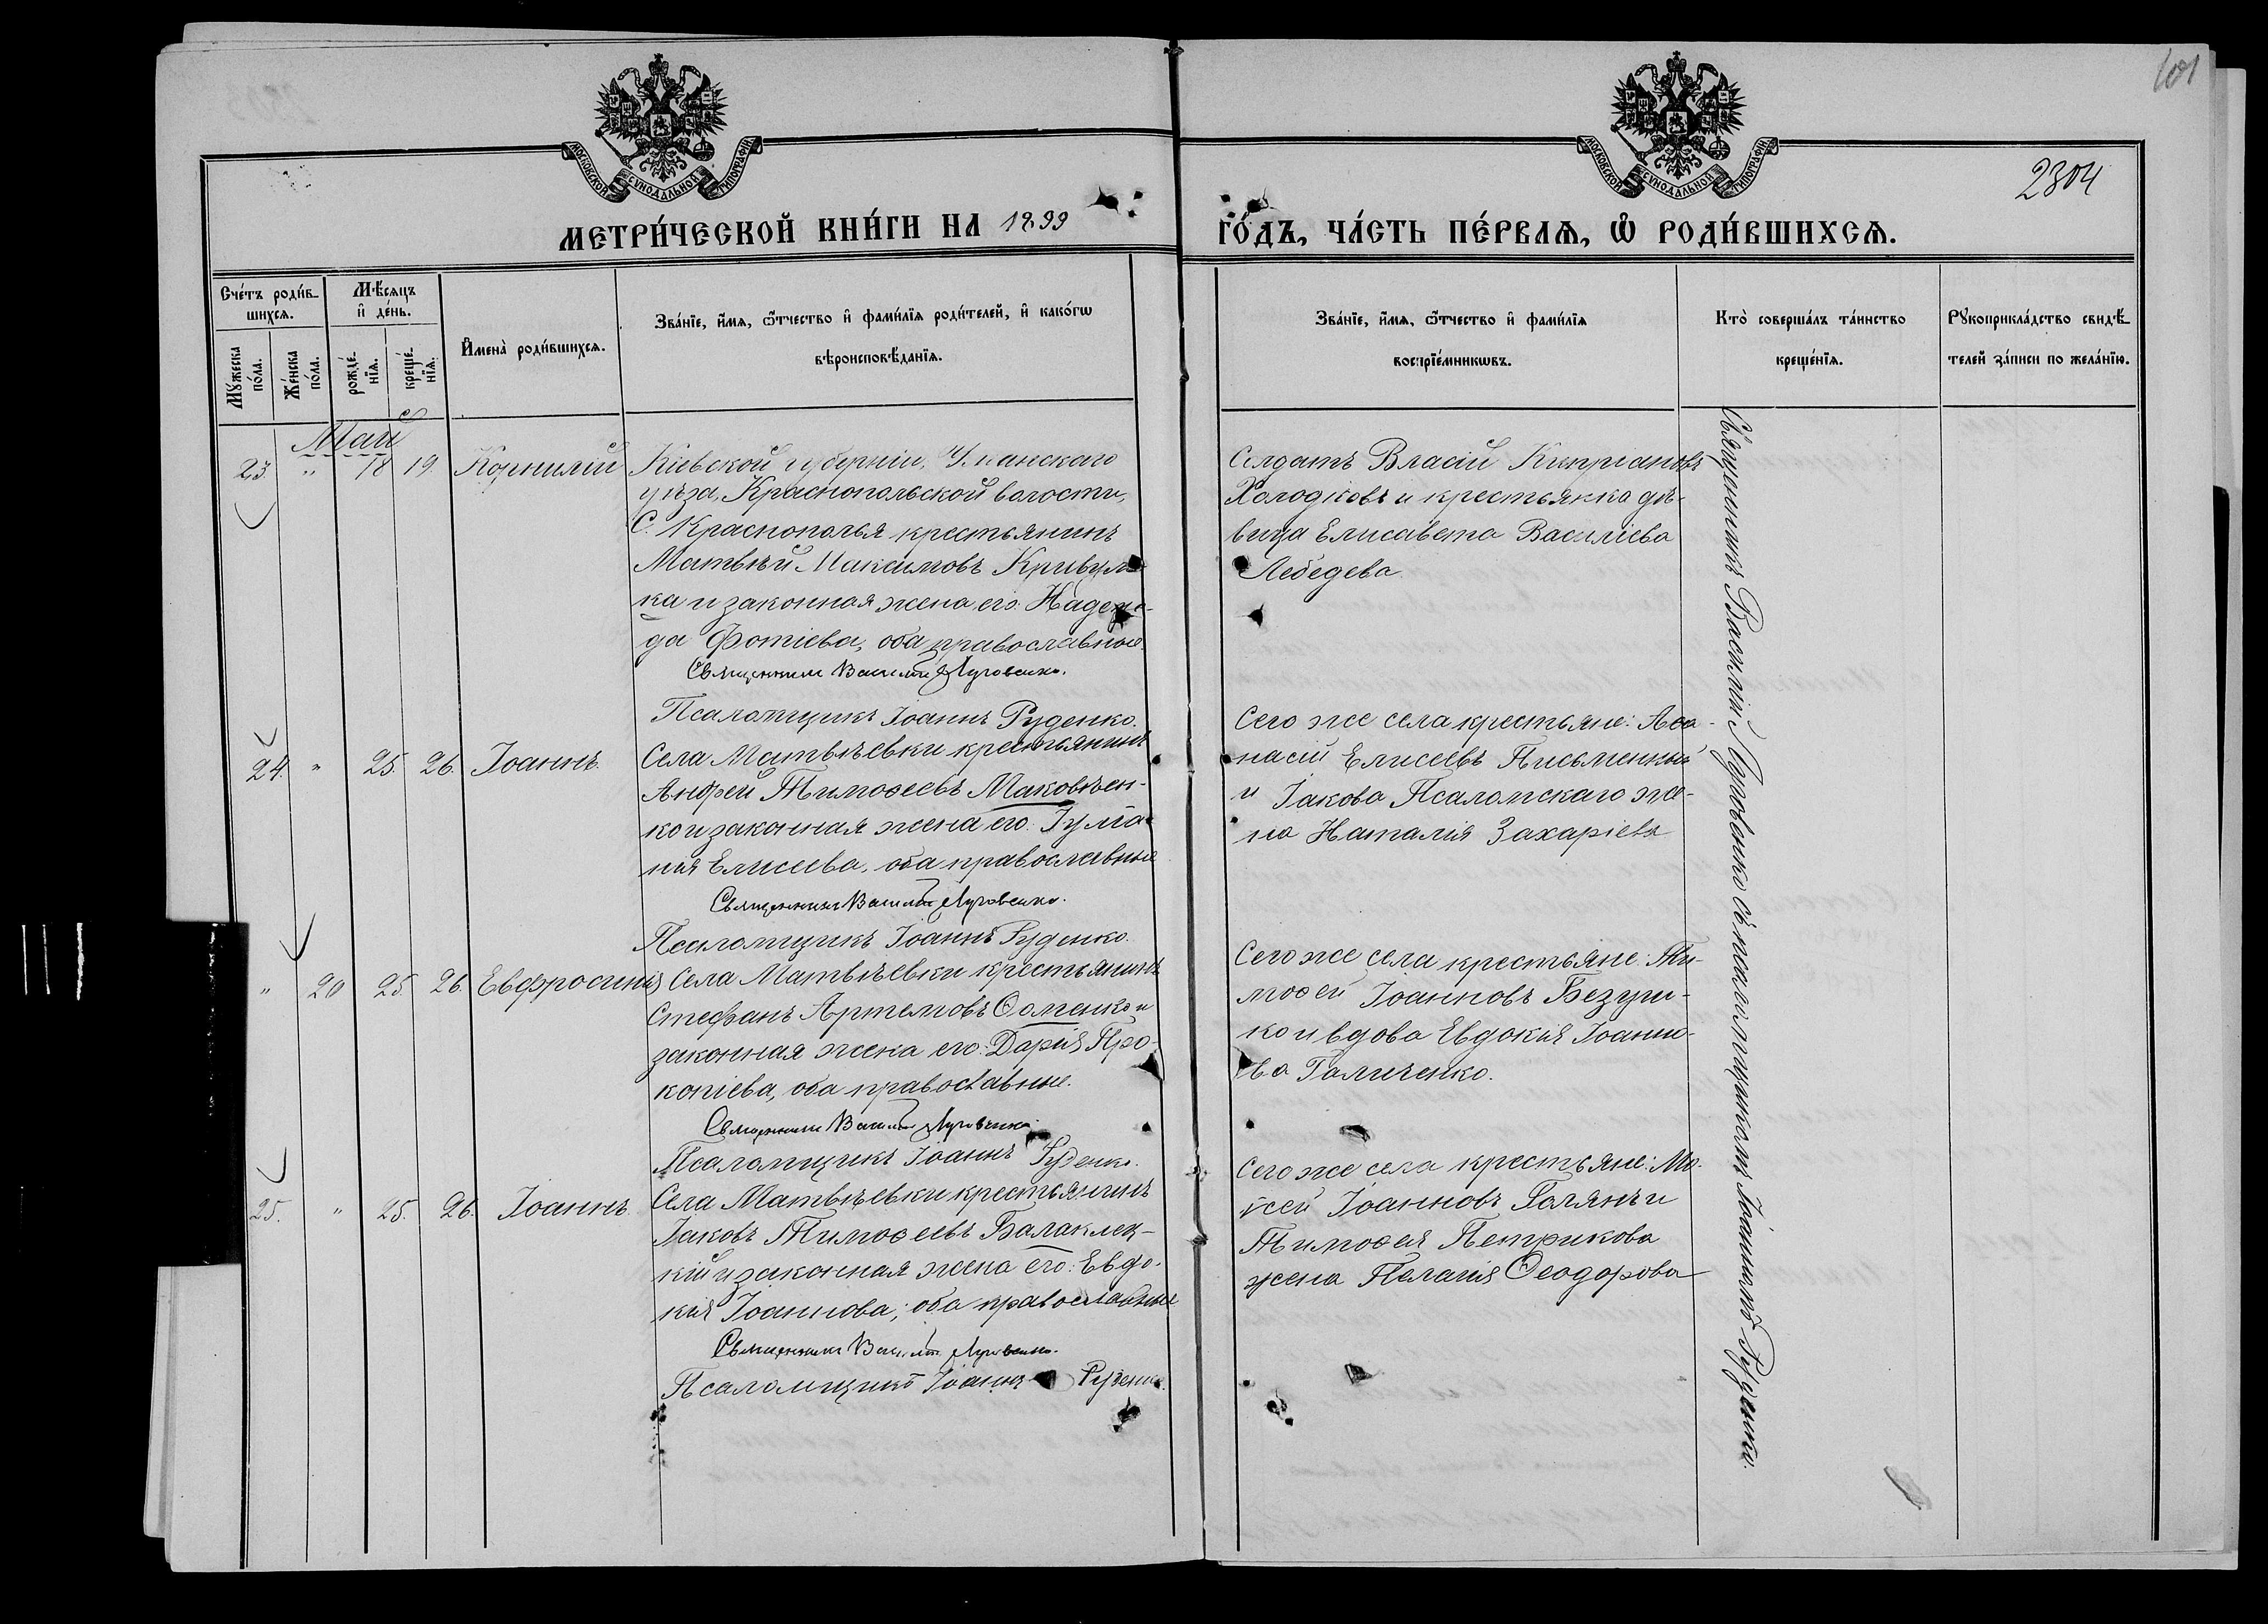 101
2304
МОСКОВСКОЙ СѴНОДАЛЬНОЙ ТИПОГРАФІИ
МОСКОВСКОЙ СѴНОДАЛЬНОЙ ТИПОГРАФІИ
МЕТРИ́ЧЕСКОЙ КНИ́ГИ НА 1899
ГО́ДЪ, ЧА́СТЬ ПЕ́РВАѦ, Ѽ РОДИ́ВШИХСѦ.
Сче́тъ роди́в-
шихсѧ.
Мꙋ́жеска
по́ла.
Же́нска
по́ла.
Мѣ́сѧцъ
и҆ де́нь.
рожде́-
нїѧ.
креще́-
нїѧ.
И҆мена̀ роди́вшихсѧ.
Зва́нїе, и҆́мѧ, ѻ҆́тчество и҆ фами́лїѧ роди́телей, и҆ како́гѡ
вѣроисповѣ́данїѧ.
Зва́нїе, и҆́мѧ, ѻ҆́тчество и҆ фами́лїѧ
воспрїе́мникѡвъ.
Кто̀ соверша́лъ та́инство
креще́нїѧ.
Рꙋкоприкла́дство свидѣ́-
телей за́писи по жела́нїю.
Май
23. " 18 19. Корнилій
Кіевской губерніи, Уманскаго
уѣзда, Краснопольской волости,
С. Краснополья крестьянинъ
Матвѣй Максимовъ Кривуль-
ка и законная жена его: Надеж-
да Фотіева, оба православные.
Священникъ Василій Луговенко.
Псаломщикъ Іоаннъ Руденко.
Солдатъ Власій Кипріановъ
Холодковъ и крестьянка дѣ-
вица Елисавета Василіева
Лебедева
24. " 25. 26. Іоаннъ.
Села Матвѣевки крестьянинъ
Андрей Тимоѳеевъ Маковѣен-
ко и законная жена его: Іулiа-
нія Елисеева, оба православные
Священникъ Василій Луговенко.
Псаломщикъ Іоаннъ Руденко.
Сего же села крестьяне: Аѳа-
насій Елисеевъ Письменный
и Іакова Псаломскаго же-
на Наталія Захаріева
" 20 25. 26. Евфросинія
Села Матвѣевки крестьянинъ
Стефанъ Артемовъ Ѳоменко и
законная жена его: Дарія Про-
копіева, оба православные.
Священникъ Василій Луговенко.
Псаломщикъ Іоаннъ Руденко.
Сего же села крестьяне: Ти-
моѳей Іоанновъ Безуг-
ко и вдова Евдокія Іоанно-
ва Галиченко.
25. " 25. 26. Іоаннъ.
Села Матвѣевки крестьянинъ
Іаковъ Тимоѳеевъ Балаклец-
кій и законная жена его: Евдо-
кія Іоаннова; оба православные
Священникъ Василій Луговенко.
Псаломщикъ Іоаннъ Руденко.
Сего же села крестьяне: Мо-
ѵсей Іоанновъ Голянъ и
Тимоѳея Петрикова
жена Пелагія Ѳеодорова
Священникъ Василій Луговенко съ псаломщикомъ Іоанномъ Руденко.